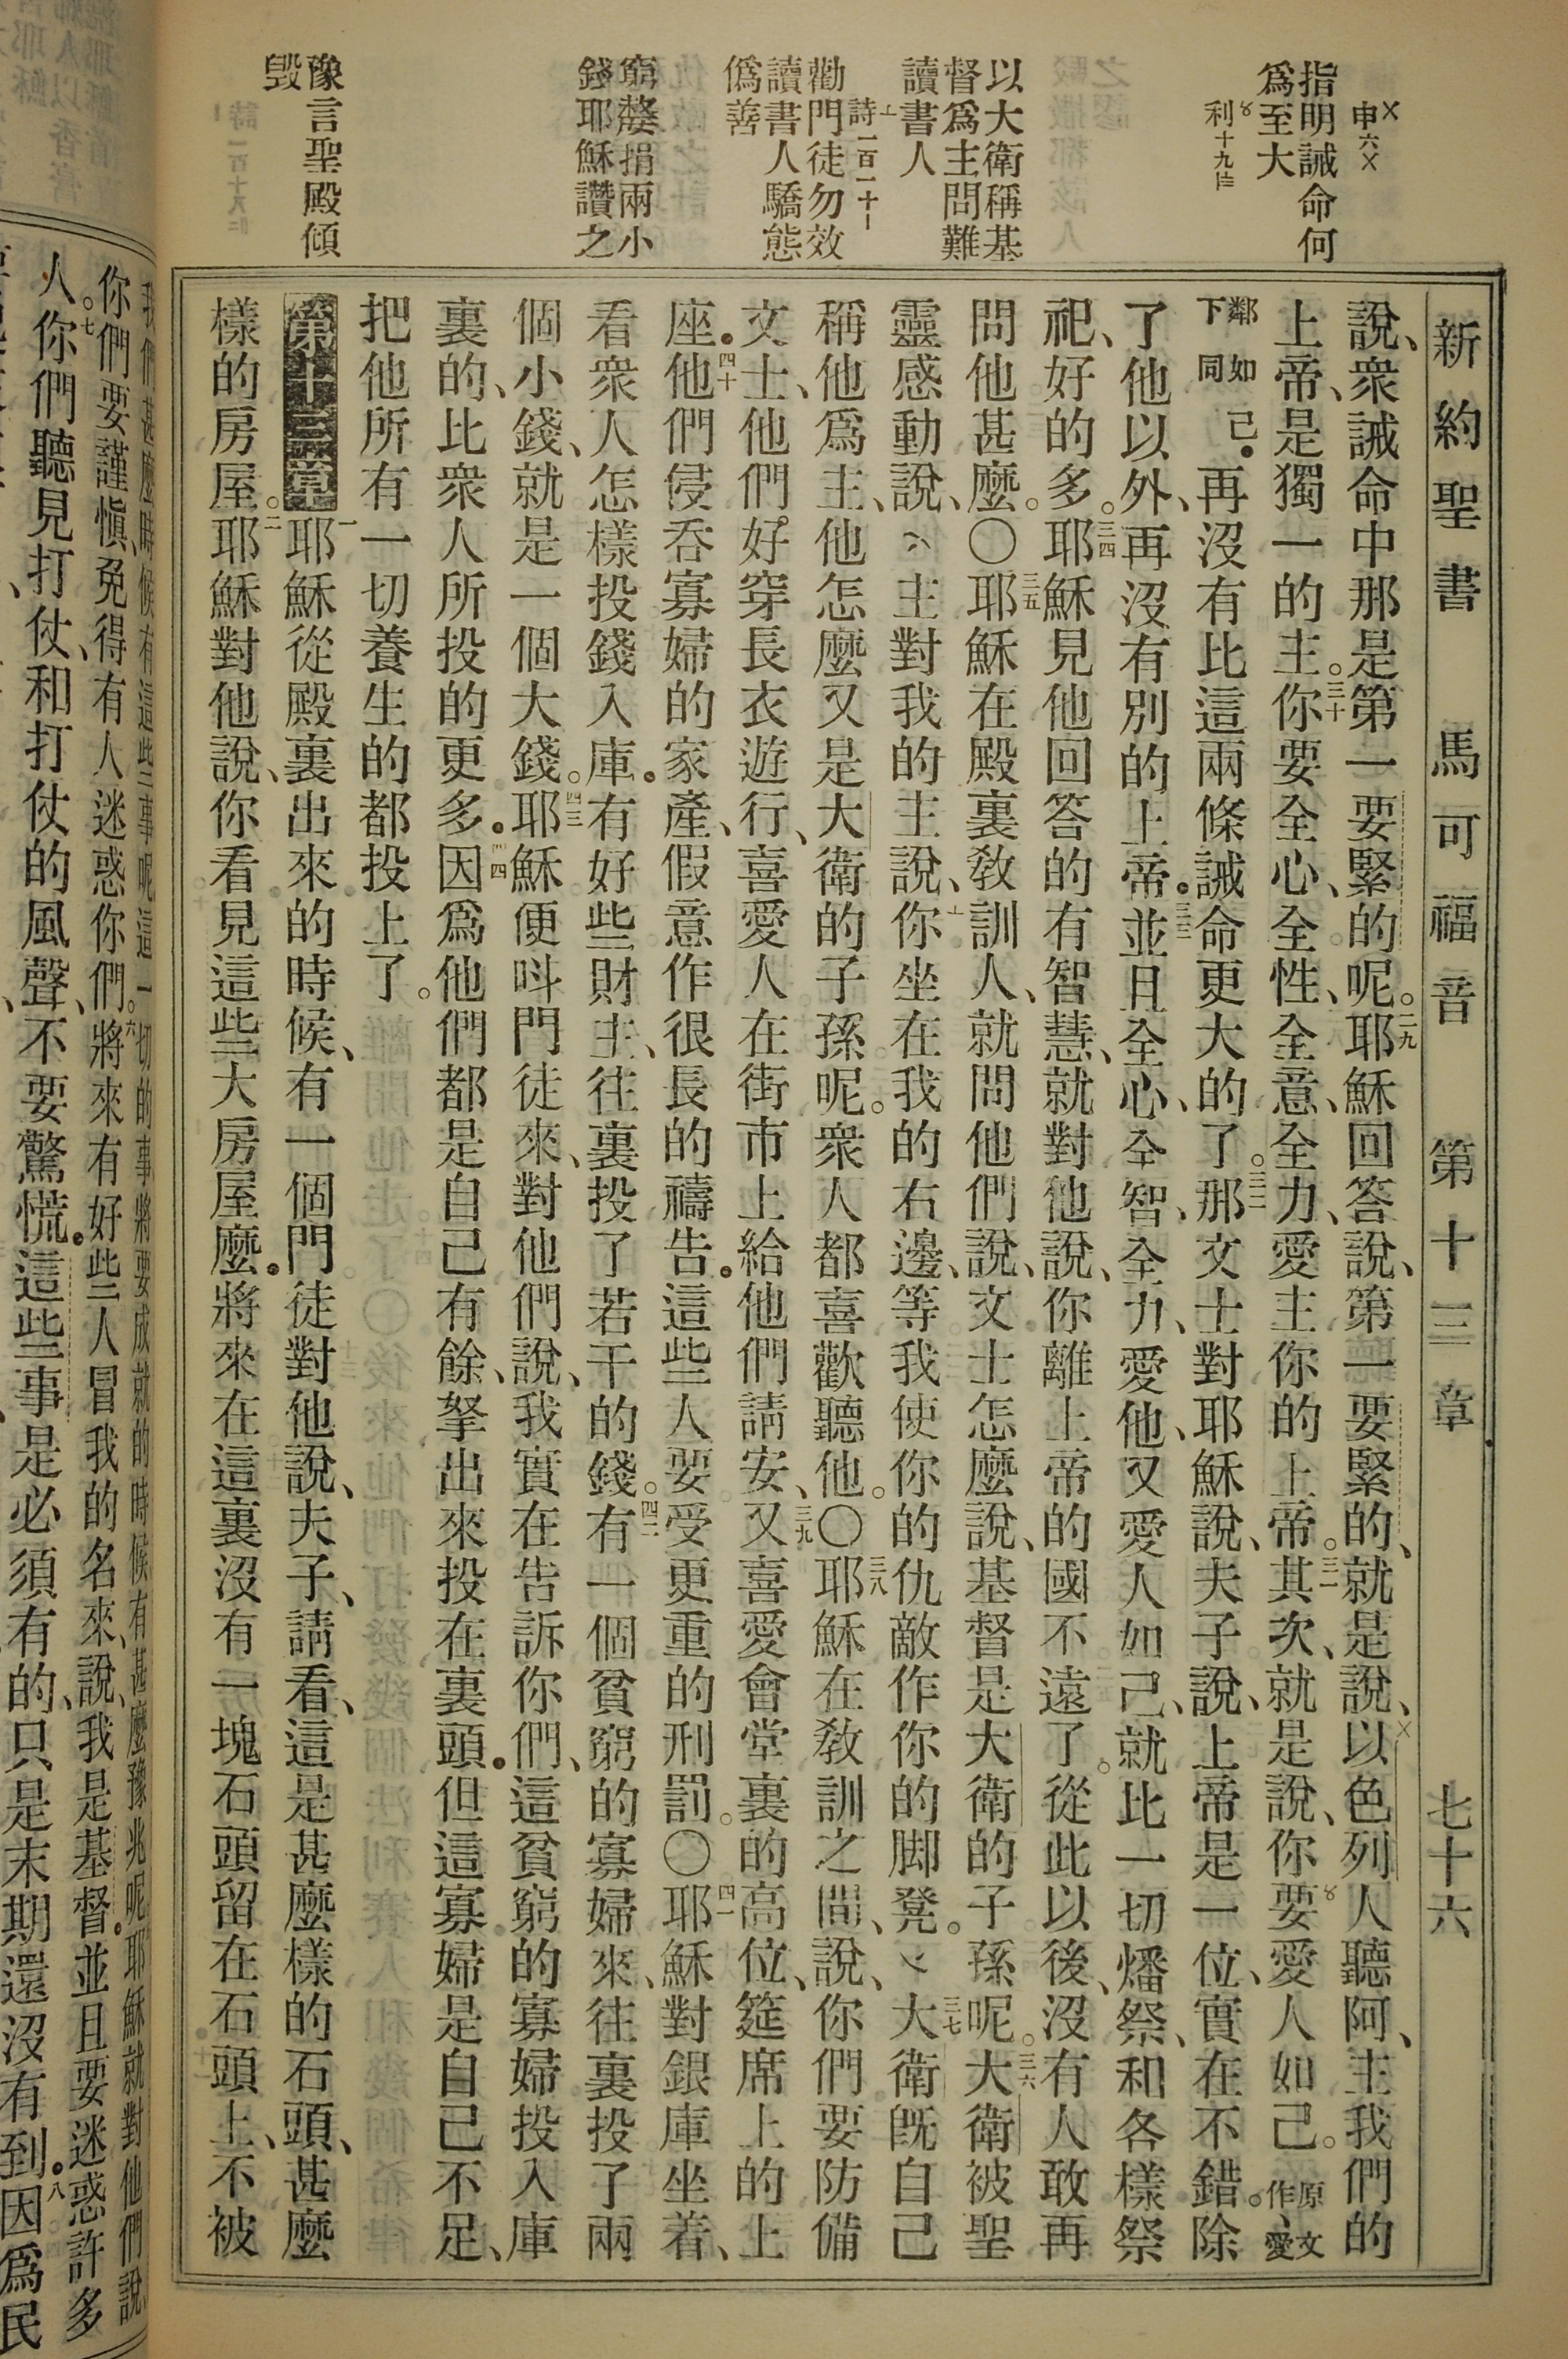 新約聖書 馬可福音 第十三章 七十六
申六
利十九
指明誡命何
爲至大
以大衛稱基
督爲主問難
讀書人
詩一百一十
勸門徒勿效
讀書人驕態
僞善
窮嫠捐兩小
錢耶穌讚之
豫言聖殿傾
毁
說、衆誡命中那是第一要緊的呢。二九耶穌回答說、第一要緊的、就是說、以色列人聽阿、主我們的
上帝、是獨一的主。三十你要全心、全性、全意、全力、愛主你的上帝。三一其次、就是說、你要愛人如己。原文作、愛
鄰如己下同再沒有比這兩條誡命更大的了。三二那文士對耶穌說、夫子說、上帝是一位、實在不錯。除
了他以外、再沒有別的上帝。三三並且全心、全智、全力、愛他、又愛人如己、就比一切燔祭、和各樣祭
祀、好的多。三四耶穌見他回答的有智慧、就對他說、你離上帝的國不遠了。從此以後、沒有人敢再
問他甚麼。〇三五耶穌在殿裏敎訓人、就問他們說、文士怎麼說、基督是大衛的子孫呢。三六大衛被聖
靈感動說、主對我的主說、你坐在我的右邊、等我使你的仇敵作你的脚凳。三七大衛旣自己
稱他爲主、他怎麼又是大衛的子孫呢。衆人都喜歡聽他。〇三八耶穌在敎訓之間、說、你們要防備
文士、他們好穿長衣遊行、喜愛人在街市上給他們請安、三九又喜愛會堂裏的高位、筵席上的上
座。四十他們侵吞寡婦的家產、假意作很長的禱告。這些人要受更重的刑罰。〇四一耶穌對銀庫坐着、
看衆人怎樣投錢入庫。有好些財主、往裏投了若干的錢。四二有一個貧窮的寡婦來、往裏投了兩
個小錢、就是一個大錢。四三耶穌便呌門徒來、對他們說、我實在告訴你們、這貧窮的寡婦投入庫
裏的、比衆人所投的更多。四四因爲他們都是自己有餘、拏出來投在裏頭。但這寡婦是自己不足、
把他所有一切養生的都投上了。
第十三章 一耶穌從殿裏出來的時候、有一個門徒對他說、夫子、請看、這是甚麼樣的石頭、甚麼
樣的房屋。二耶穌對他說、你看見這些大房屋麼。將來在這裏沒有一塊石頭留在石頭上、不被
我們甚麼時候有這些事呢這一切的事將要成就的時候有甚麼豫兆呢耶穌就對他們說
你們要謹慎、免得有人迷惑你們。六將來有好些人冒我的名來、說、我是基督。並且要迷惑許多
人。七你們聽見打仗、和打仗的風聲、不要驚慌。這些事是必須有的、只是末期還沒有到。八因爲民